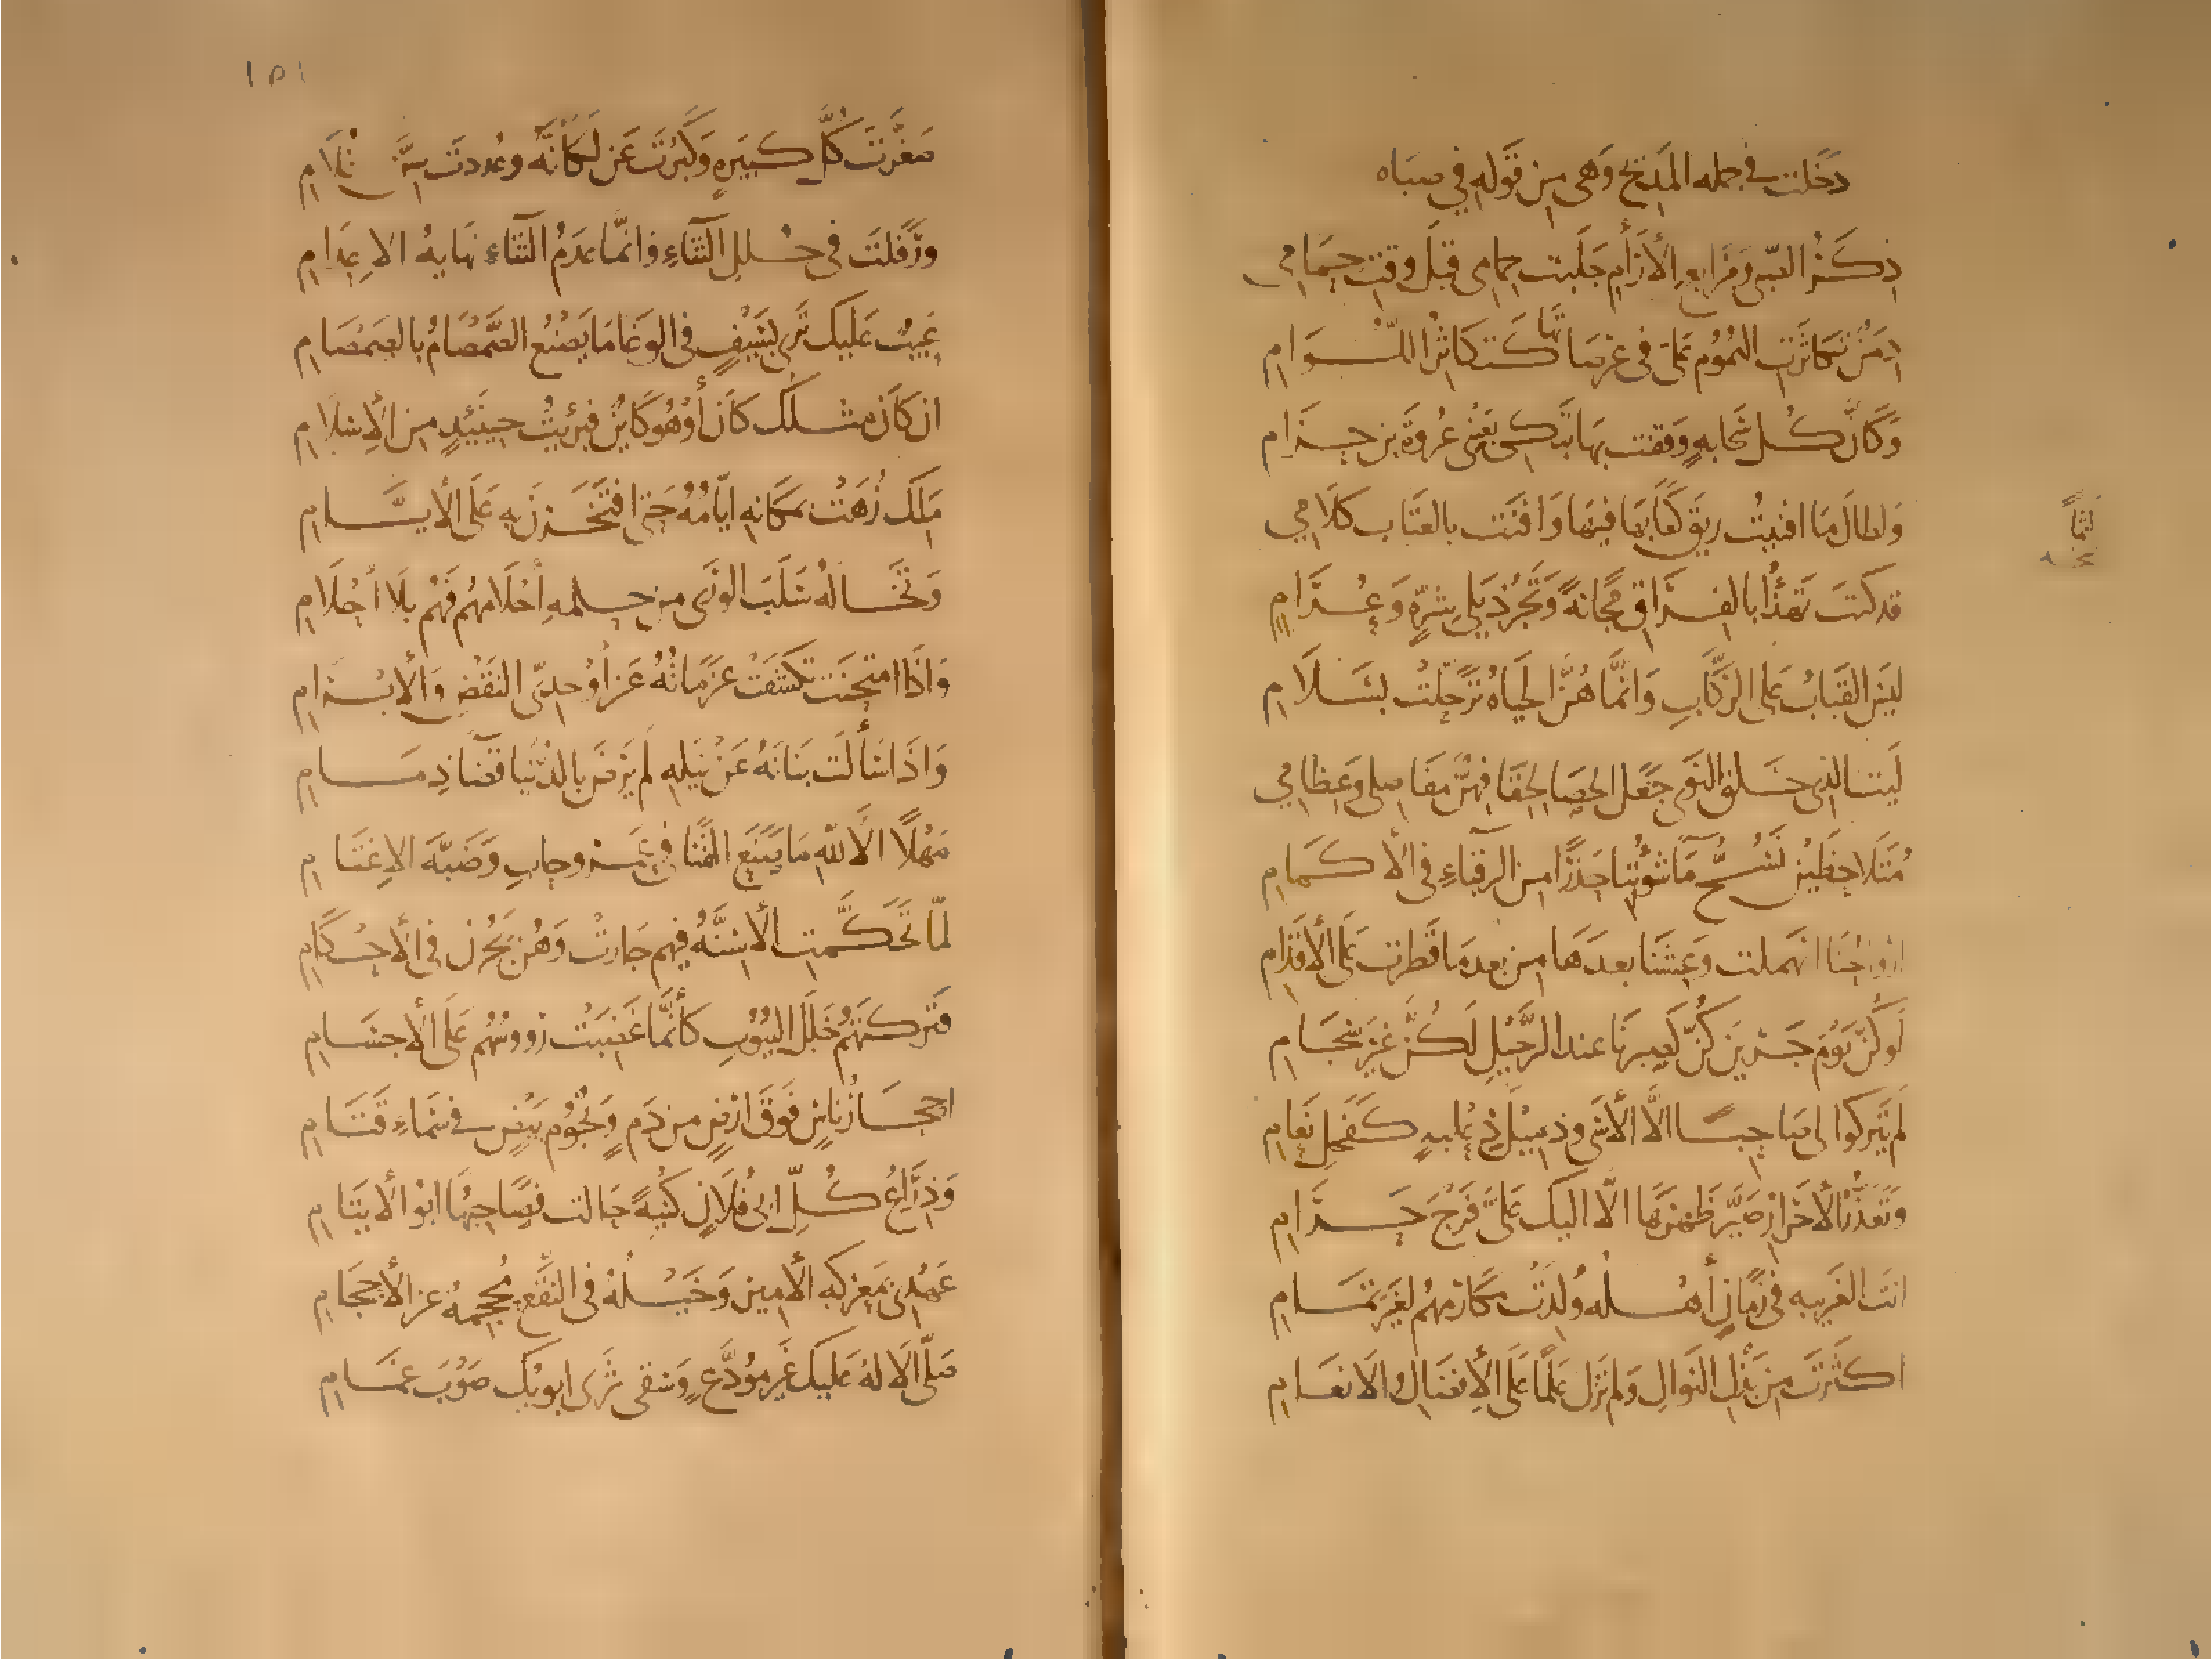 دَخَلت في جمله المَديح وَهى مِن قَولِهِ في صِبَاه
ذِكَرُ الصّبى وَمَرَابِعِ الأرَامِ جَلَبت حِمامى قبلَ وقتِ حِمَامِي
دِمَنٌ تَكاثَرَتِ الهُمُوُم عَلىَّ فى عَرَصَاتِهَا كَتَكَاثُرِ اللُّـوَامِ
وَكَأنَّ كُـل سَحَابةٍ وَقَفت بِهَا تَبكى بعَيْنَى عُروَةَ بن حِـزَامِ
وَلطالَ مَا افنيتُ ريقَ كَعَابِهَا فِيهَا وَافنَت بالعتَاب كَلاَمِي
قد كنتَ تَهَزأُ بالفـرَاقِ مَجَانةً وَتَجُرّ ذَيلَى شِرَّةٍ وَعُـرَامِ
ليسَ القبَابُ عَلى الرّكَابِ وَانَّمَا هُنَّ الحَيَاهُ تَرَحَّلَتْ بسَـلاَمِ
لَيتَ الذِى خَـلقَ النَوَى جَعَل الحصَا لِخفَافِهِنَّ مَفَاصِلى وَعِظَامِي
مُتَلاحِظَيْن نَسُـحُّ مَآءَ شؤُنِنا حَذَرًا مِن الرقبَآءِ فى الأكـمَامِ
ارْوَاحُنَا انهَملَت وَعِشنَا بعدَهَا مِن بعدِ مَا قَطَرَت عَلى الأقدَامِ
لَو كُنَّ يَوْمَ جَـرَيْنَ كُنَّ كَصبرنَا عند الرَّحِيْلِ لَكُـنَّ غَيرَ سِجَامِ
لَم يَترُكوا لى صَاحِبًـا الَّا الأسَى وَذَمِيْلَ ذِعْلِبةٍ كـفَحلِ نَعَامِ
وَتَعذُّرُ الأحْرَارِ صَيَّرَ ظَهْرَهَا الَّا اليك عَلىَّ فَرْجَ حَـرَامِ
انتَ الغَريبه فى زَمَانٍ أهْـلُه وُلدَتْ مَكَارِمُهُم لغَيرِ تمَـامِ
اكـثَرْتَ مِن بَذْلِ النَوَالِ وَلم تَزَل عَلَمًا عَلَى الأِفضَالِ وَالانعَـامِ
لثمًا
١٥١
صَغَّرْتَ كُلَّ كَـبيرةٍ وَكَبُرْتَ عَن لَكَأَنَّه وعُددتَ سِنَّ غُلاَمِ
وَرَفَلتَ فى حُـلل الثَنَآءِ وَانَّمَا عَدَمُ الثَنَآءِ نهَايهُ الاعِدَامِ
عَيبٌ عَلَيك تُرَى بِسَيْفٍ فى الوَغَا مَا يَصْنَعُ الصَّمْصَامُ بالصَمْصَامِ
ان كَانَ مثـلكَ كَانَ أوْ هُوَ كَايُنٌ فبَرِئتُ حِينَئِذٍ مِن الأِسْلاَمِ
مَلِكٌ زُهَتْ بِمَكَانِهِ ايّامُهُ حَتى افتَخَـرْنَ بِهِ عَلَى الأيـَّـامِ
وَتَخَـالُهُ سَلَبَ الوَرَى مِن حِـلمهِ أحْلاَمَهُم فَهُم بلاَ احْلاَمِ
وَاذَا امتحَنتَ تكَشّفَتْ عَزَمَاتُهُ عَن أوْحدِىّ النَقْضِ وَالأِبْـرَامِ
وَاذَا سَألتَ بَنَانَهُ عَنْ نَيلهِ لَم يَرْضَ بالدُنْيَا قَضَآ ذِمَـامِ
مَهْلًا الَا للهِ مَا صَنَع القَنَا فى عَمْـرِو حَابِ وَضَبَّةَ الاِغتَامِ
لمّا تَحَكَّـمَتِ الأسِنَّهُ فيهِم جَارَتْ وَهُنَّ يَجُرْنَ فى الأحْـكَامِ
فَتَركـتهُمْ خَلَلَ البُيُوتِ كَأنَّمَا غَضِبَتْ رؤوسُهُم عَلَى الأجسَـامِ
احجَـارُ نَاسٍ فَوقَ ارْضٍ مِن دَمٍ وَنُجُومُ بَيْضٍ في سَمَآءِ قَتَـامِ
وَذِرَاعُ كُـلِّ ابى فُلاَنٍ كُنْيهً حَالت فصَاحِبُهَا ابُو الأيتَامِ
عَهْدِى بمَعْرَكهِ الأمِيرِ وَخَيْـلُهُ فى النَقْعِ مُحجِمهٌ عن الأحْجَامِ
صَلّى الاَلهُ عَلَيكَ غَيرَ مُوَدَّعٍ وَسَقى ثَرَى ابويْكَ صَوْبَ غمَـامِ